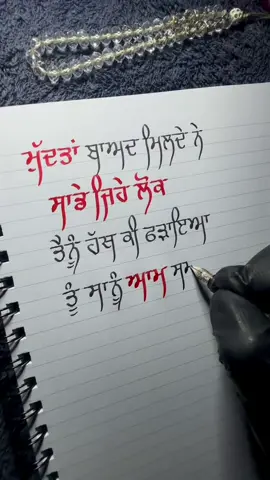 ਮੁੱਦਤਾਂ ਬਾਅਦ ਮਿਲਦੇ ਨੇ
ਸਾਡੇ ਜਿਹੇ ਲੋਕ
ਤੈਨੂੰ ਹੱਥ ਕੀ ਫੜਾਇਆ
ਤੂੰ ਸਾਨੂੰ ਆਮ ਸਮ